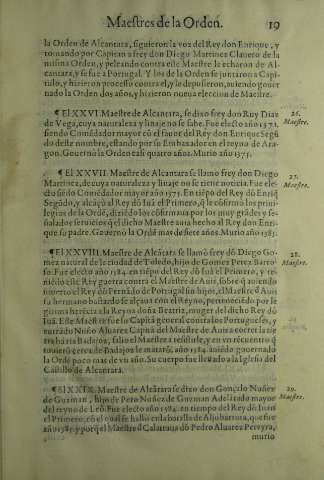 Maestres de la Orden. 19
la Orden de Alcantara, siguieron la voz del Rey don Enrique, y
tomando por Capitan a frey don Diego Martinez Clauero de la
misma Orden, y peleando contra este Maestre le echaron de Al-
cantara, y se fue a Portugal. Y los de la Orden se juntaron a Capi-
tulo, y hizieron processo contra el, y le depusieron, auiendo gouer
nado la Orden dos años, y hizieron nueua eleccion de Maestre.
¶ El XXVI. Maestre de Alcantara, se dixo frey don Ruy Diaz
de Vega, cuya naturaleza y linaje no se sabe. Fue electo año 1371.
siendo Comēdador mayor cō el fauor del Rey don Enrique Segū
do deste nombre, estando por su Embaxador en el reyno de Ara-
gon. Gouernò la Orden casi quatro años. Murio año 1375.
26.
Maestre.
¶ El XXVII. Maestre de Alcantara se llamo frey don Diego
Martinez, de cuya naturaleza y linaje no se tiene noticia. Fue ele-
cto siendo Comēdador mayor año 1375. En tiēpo del Rey dō Enriq̄
Segūdo, y alcāçò al Rey dō Iuā el Primero, q̄ le cōfirmò los priui-
legios de la Ordē, diziēdo los cōfirmaua por los muy grādes y se-
ñalados seruicios q̄ el dicho Maestre auia hecho al Rey don Enri-
que su padre. Gouernò la Ordē mas de siete años. Murio año 1383.
27.
Maestre.
¶ El XXVIII. Maestre de Alcātara se llamò frey dō Diego Go-
mez natural de la ciudad de Toledo, hijo de Gomez Perez Barro-
so. Fue electo año 1384. en tiēpo del Rey dō Iuā el Primero, y te-
niēdo este Rey guerra contra el Maestre de Auis, sobre q̄ auiendo
muerto el Rey dō Fernādo de Portugal sin hijos, el Maestre de Auis
su hermano bastardo se alçaua con el Reyno, perteneciēdo por le
gitima herēcia a la Reyna doña Beatriz, muger del dicho Rey dō
Iuā. Este Maestre fue la Capitā general contra los Portugueses, y
entrādo Nuño Aluarez Capitā del Maestre de Auis a correr la tie
rra hàzia Badajoz, salio el Maestre a resistirle, y en vn recuentro q̄
tuuierō cerca de Badajoz le matarō, año 1384. auiēdo gouernado
la Ordē poco mas de vn año. Su cuerpo fue lleuado a la Iglesia del
Castillo de Alcantara.
28.
Maestre.
¶ El XXIX. Maestre de Alcātara se dixo don Gonçalo Nuñez
de Guzman, hijo de Pero Nuñez de Guzman Adelātado mayor
del reyno de Leō. Fue electo año 1384. en tiempo del Rey dō Iuan
el Primero, cō el qual se hallò en la batalla de Aljubarrota, que fue
año 1385. y porq̄ el Maestre d̄ Calatraua dō Pedro Aluarez Pereyra,
29.
Maestre.
murio